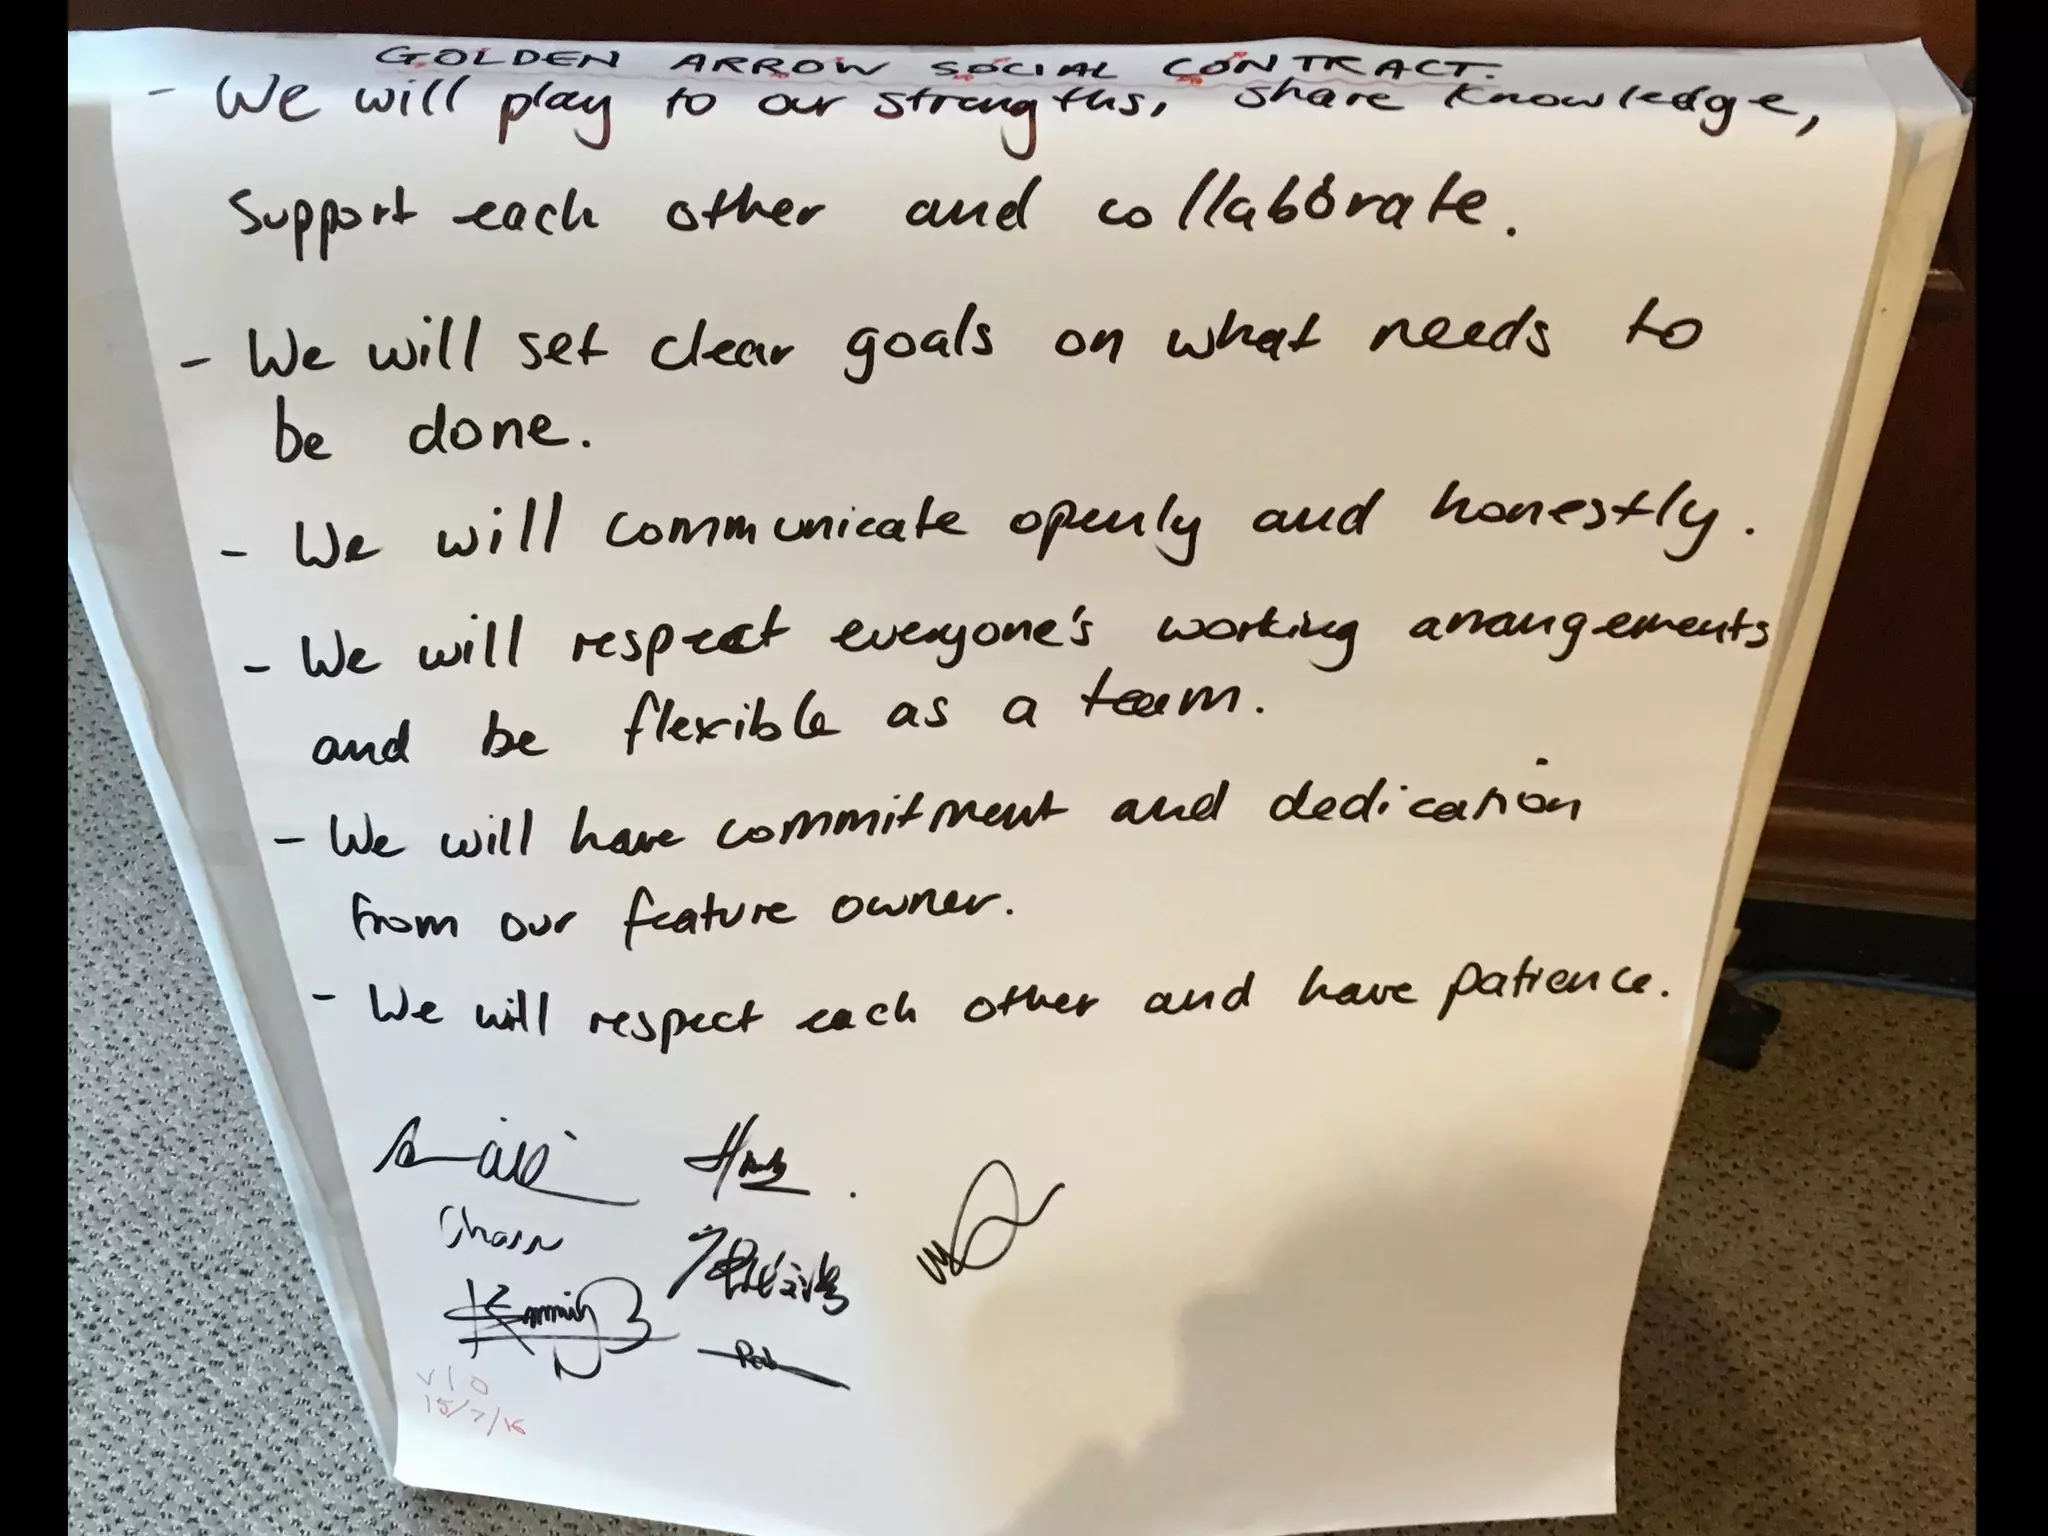 GOLDEN ARROW SOCIAL CONTRACT.
- We will play to our strengths, share knowledge,
support each other and collaborate.
- We will set clear goals on what needs to
be done.
- We will communicate openly and honestly.
- We will respect everyone's working arrangements
and be flexible as a team.
- We will have commitment and dedication
from our feature owner.
- We will respect each other and have patience.
v10
15/7/16